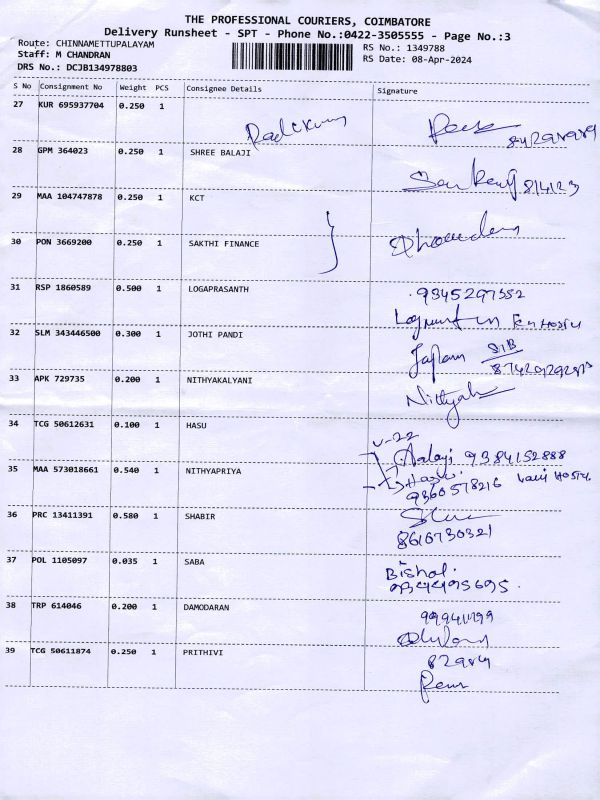 THE PROFESSIONAL COURIERS, COIMBATORE
Delivery Runsheet - SPT - Phone No.:0422-3505555 - Page No.:3
Route: CHINNAMETTUPALAYAM
RS No.: 1349788
Staff: M CHANDRAN
RS Date: 08-Apr-2024
DRS No.: DCJB134978803
S No Consignment No Weight PCS Consignee Details Signature
27 KUR 695937704 0.250 1
28 GPM 364023 0.250 1 SHREE BALAJI
29 MAA 104747878 0.250 1 KCT
30 PON 3669200 0.250 1 SAKTHI FINANCE
31 RSP 1860589 0.500 1 LOGAPRASANTH
9345297552
32 SLM 343446500 0.300 1 JOTHI PANDI
33 APK 729735 0.200 1 NITHYAKALYANI
34 TCG 50612631 0.100 1 HASU
9384152888
35 MAA 573018661 0.540 1 NITHYAPRIYA
9360578216
36 PRC 13411391 0.580 1 SHABIR
8616730321
37 POL 1105097 0.035 1 SABA
Bishal.
38 TRP 614046 0.200 1 DAMODARAN
39 TCG 50611874 0.250 1 PRITHIVI